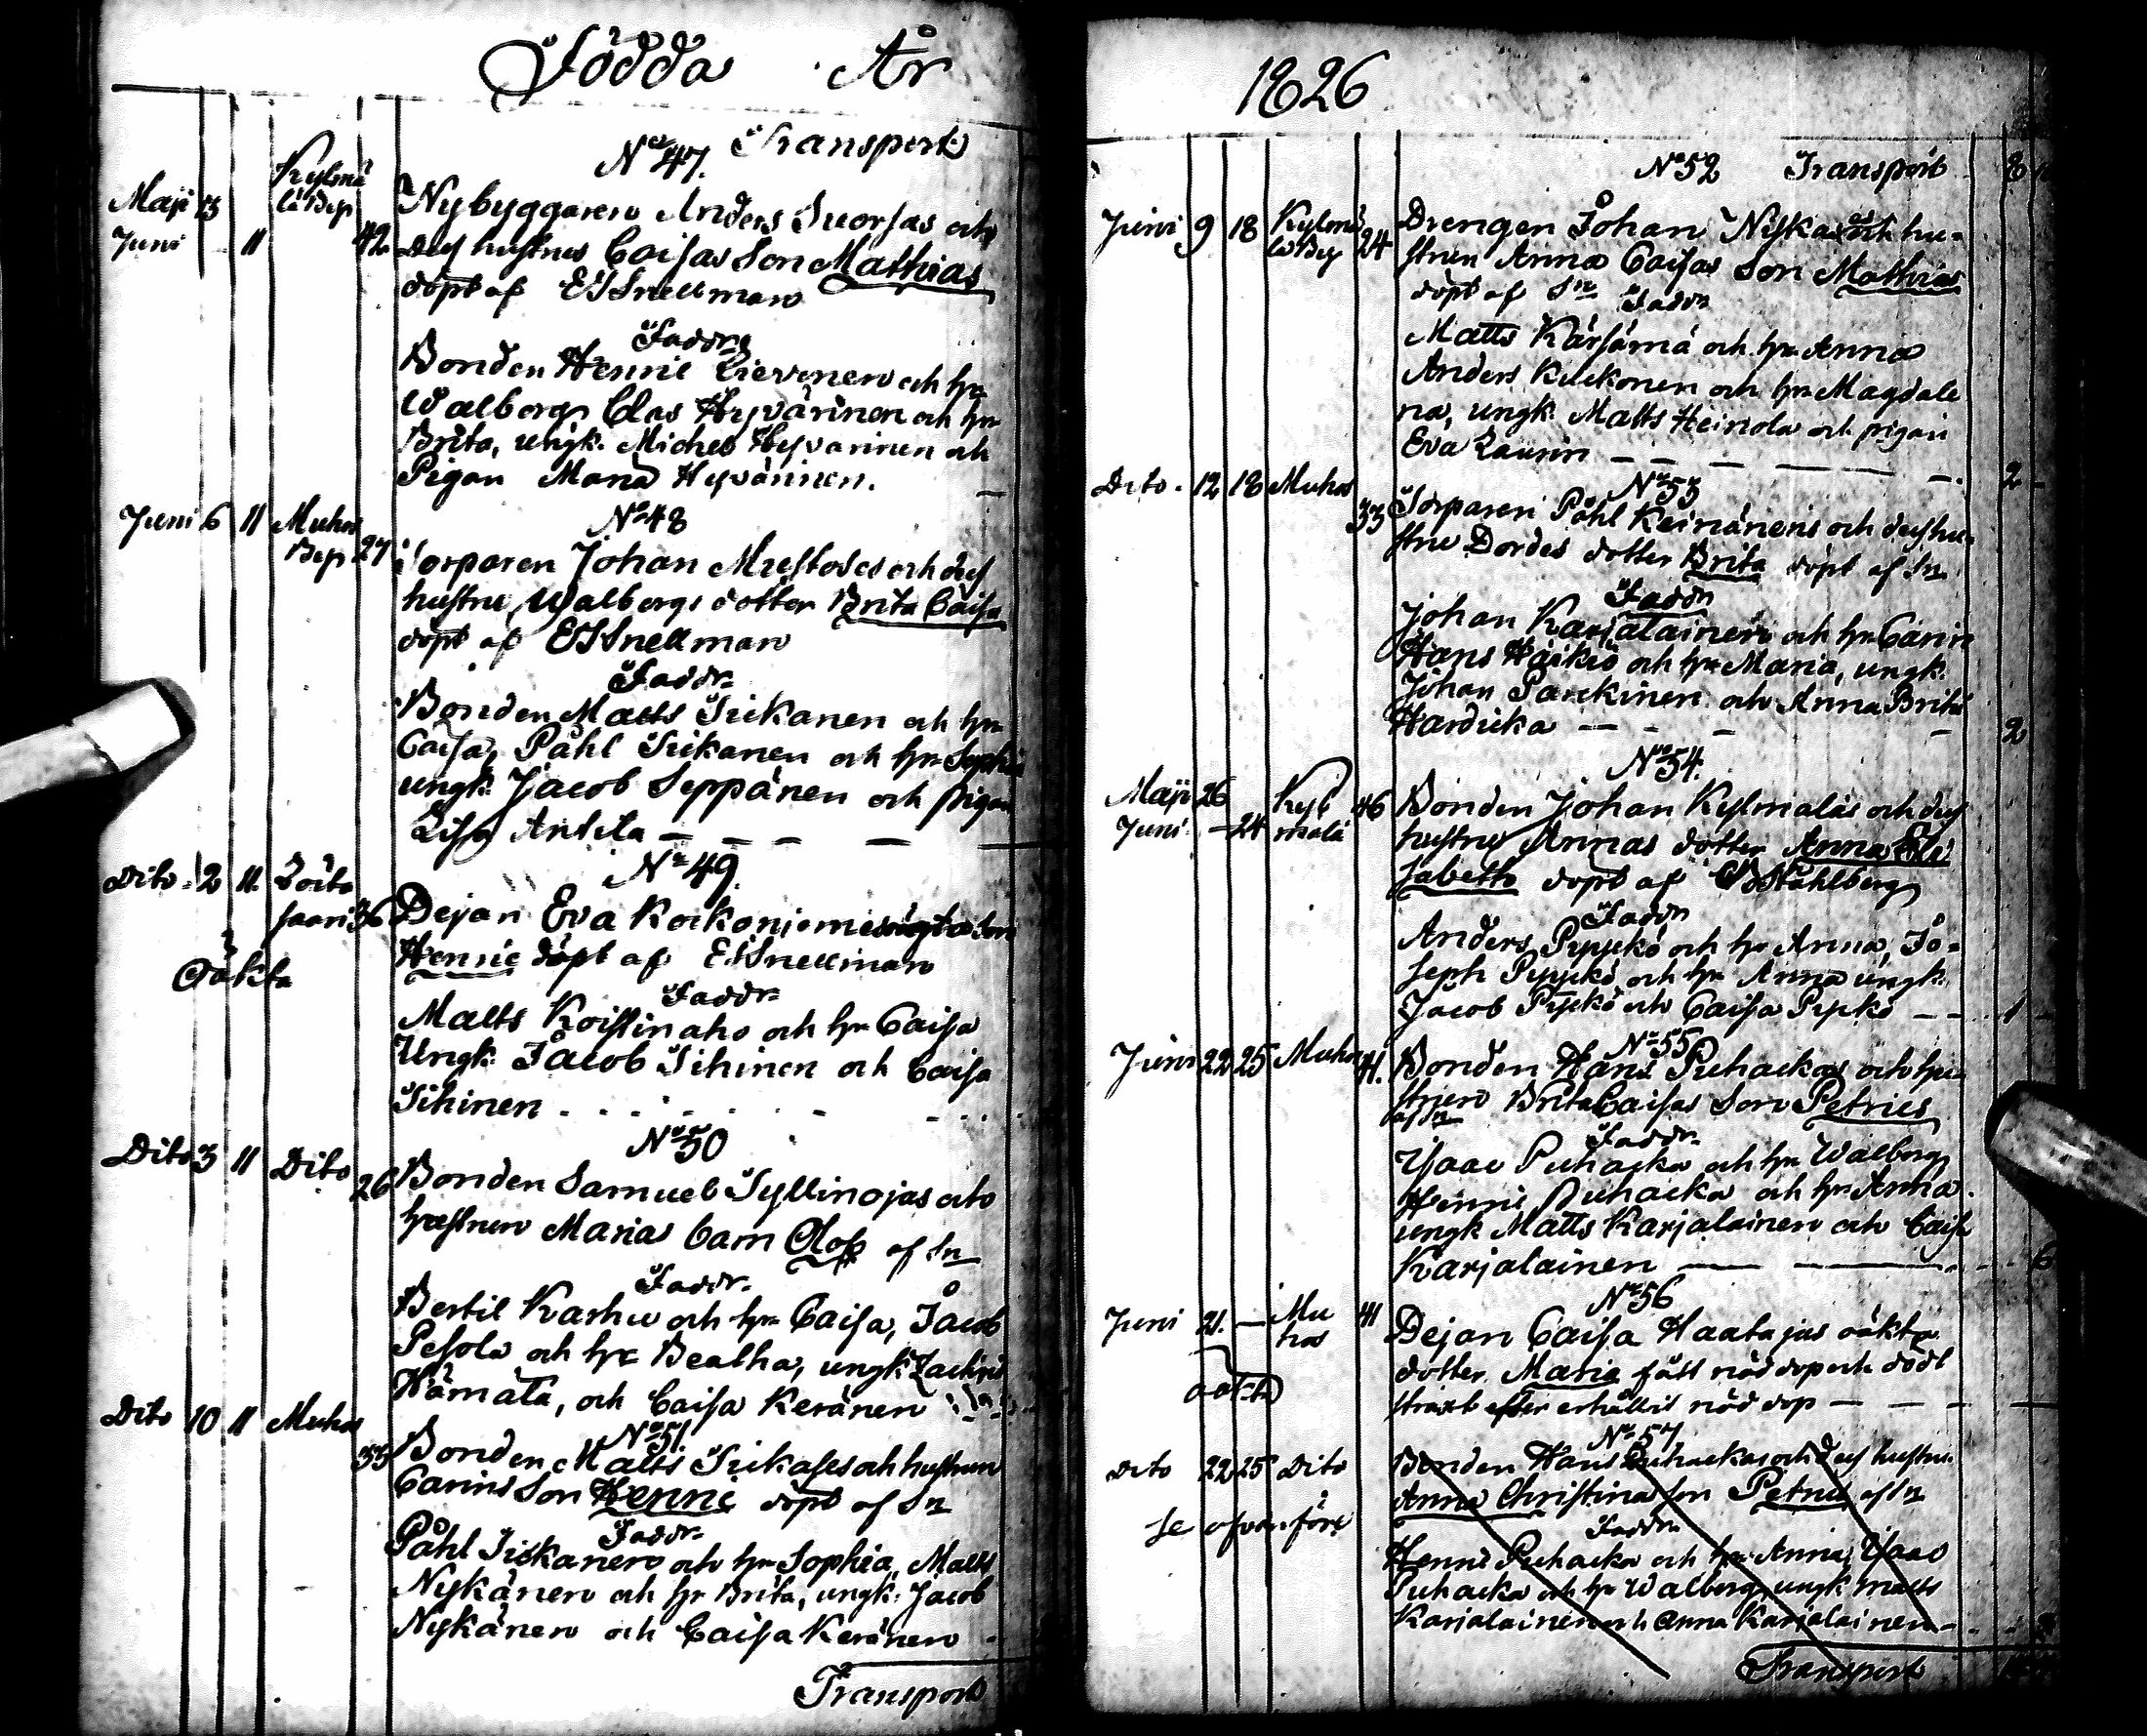 Födda År
Transport
No 47.
Maji 13 Kylmä
lä By
Juni 11 42
Nybyggaren Anders Suorsas och
dess hustrus Caisas Son Mathias
döpt af E J Snellman
Faddr
Bonden Henric Lievonen och hr
Walborg, Clas Hyvärinen och hr
Brita, ungk. Michel Hyvärinen och
Pigan Maria Hyvärinen.
No 48
Juni 6 11 Muhos
By 27
Torparen Johan Mustoses och dess
hustru Walborgs dotter Brita Caisa
döpt af E J Snellman
Faddr
Bonden Matts Tiikanen och hr
Caisa, Påhl Tiikanen och hr Sophia
ungk. Jacob Seppänen och pigan
Lisa Anttila
No 49.
Dito 2 11 Soito
saari 36
Oäkta
Dejan Eva Koikoniemis oägta Son
Henric döpt af E J Snellman
Faddr
Matts Koistinaho och hr Caisa
Ungk. Jacob Tihinen och Caisa
Tihinen
No 50
Dito 3 11 Dito 26
Bonden Samuel Tyllinojas och
hustrun Marias barn Olof af Sn
Faddr
Bertil Karhu och hr Caisa, Jacob
Pesola och hr Beatha, ungk Zachris
Hämälä, och Caisa Keränen
No 51.
Dito 10 11 Muhos 33
Bonden Matts Tiikases och hustrun
Carins Son Henric döpt af Sn
Faddr
Påhl Tiikanen och hr Sophia, Matts
Nykänen och hr Brita, ungk. Jacob
Nykänen och Caisa Keränen
Transport
1826
No 52 Transport 8
Juni 9 18 Kylmä
lä By 24
Drengen Johan Nyka och hu-
strun Anna Caisas Son Mathias
döpt af Sn Faddr
Matts Kärsämä och hr Anna
Anders Kukkonen och hr Magdale
na, ungk. Matts Heinola och pigan
Eva Laurin 2
No 53
Dito 12 18 Muhos 33
Torparen Påhl Keinänens och dess hu-
stru Dordes dotter Brita döpt af Sn
Faddr
Johan Karjalainen och hr Carin
Hans Häikiö och hr Maria, ungk.
Johan Parckinen och Anna Brita
Hardicka 2
No 54.
Maji 26 Kyl 46
Juni 24 mälä
Bonden Johan Kylmäläs och dess
hustrus Annas dotter Anna Eli
sabeth döpt af Ståhlberg
Faddr
Anders Pyykö och hr Anna, Jo-
seph Pyykö och hr Anna ungk.
Jacob Pyykö och Caisa Pyykö 1
No 55
Juni 22 25 Muhos 41.
Bonden Hans Puhackas och hu-
strun Brita Caisas Son Petrus
af Sn
Faddr
Isaac Puhacka och hr Walborg
Henric Puhacka och hr Anna
ungk Matts Karjalainen och Caisa
Karjalainen 6
No 56
Juni 21. Mu
hos 41
oäkta
Dejan Caisa Haatajas oäkta
dotter Maria fått nöddop och död
straxt efter erhållit nöd dop
No 57
Dito 22 25 Dito
Se ofvanföre
Bonden Hans Puhackas och dess hustrus
Anna Christina son Petrus af Sn
Faddr
Henric Puhacka och hr Anna, Isaac
Puhacka och hr Walborg, ungk Matts
Karjalainen och Anna Karjalainen
Transport